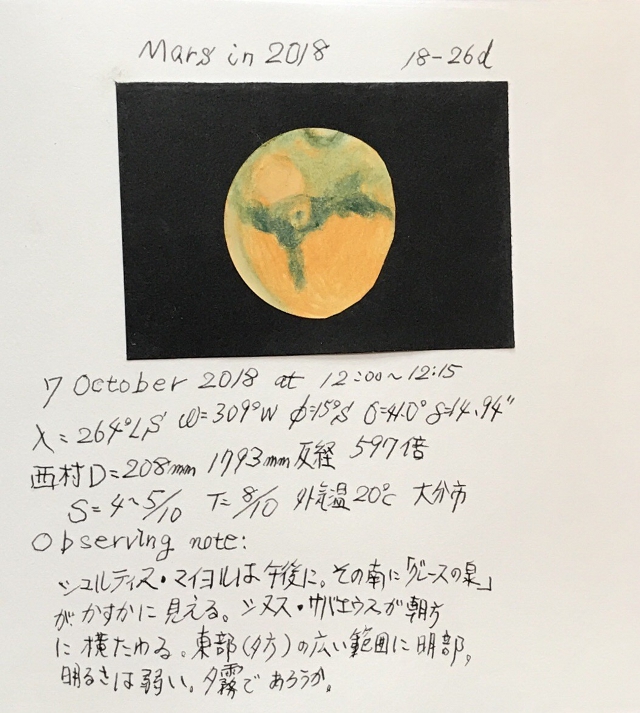 Mars in 2018 18-26d
7 October 2018 at 12:00~12:15
λ=264°LS ω=309°W φ=15°S δ=41.0° δ=14.94"
西村D=208mm 1793mm反経 597倍
S=4~5/10 T=8/10 外気温20℃ 大分市
Observing note:
シュルティス・マイヨルは午後に。その南に「グレースの泉」
がかすかに見える。シヌス・サバエウスが朝方
に横たわる。東部(夕方)の広い範囲に明部。
明るさは弱い。夕霧であろうか。